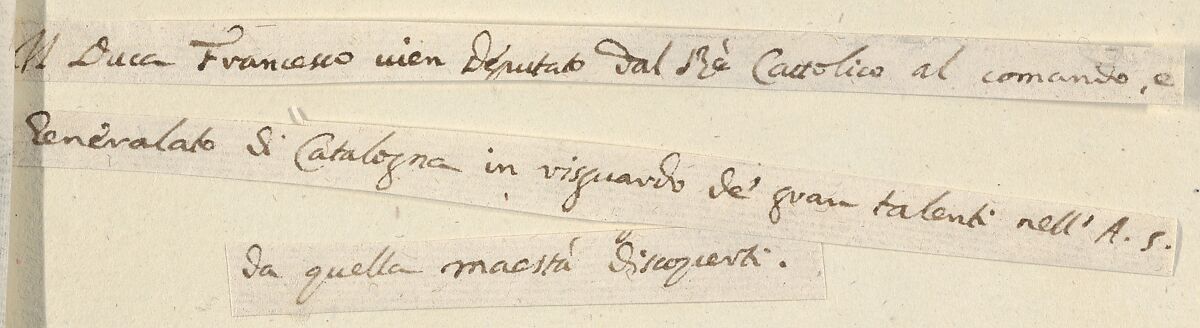 Il Duca Francesco vien députato dal Rè Cattolico al comando, e
Generalato di Catalogna in risguardo de' gran talenti nell' A. S.
da quella maestà discoperti.